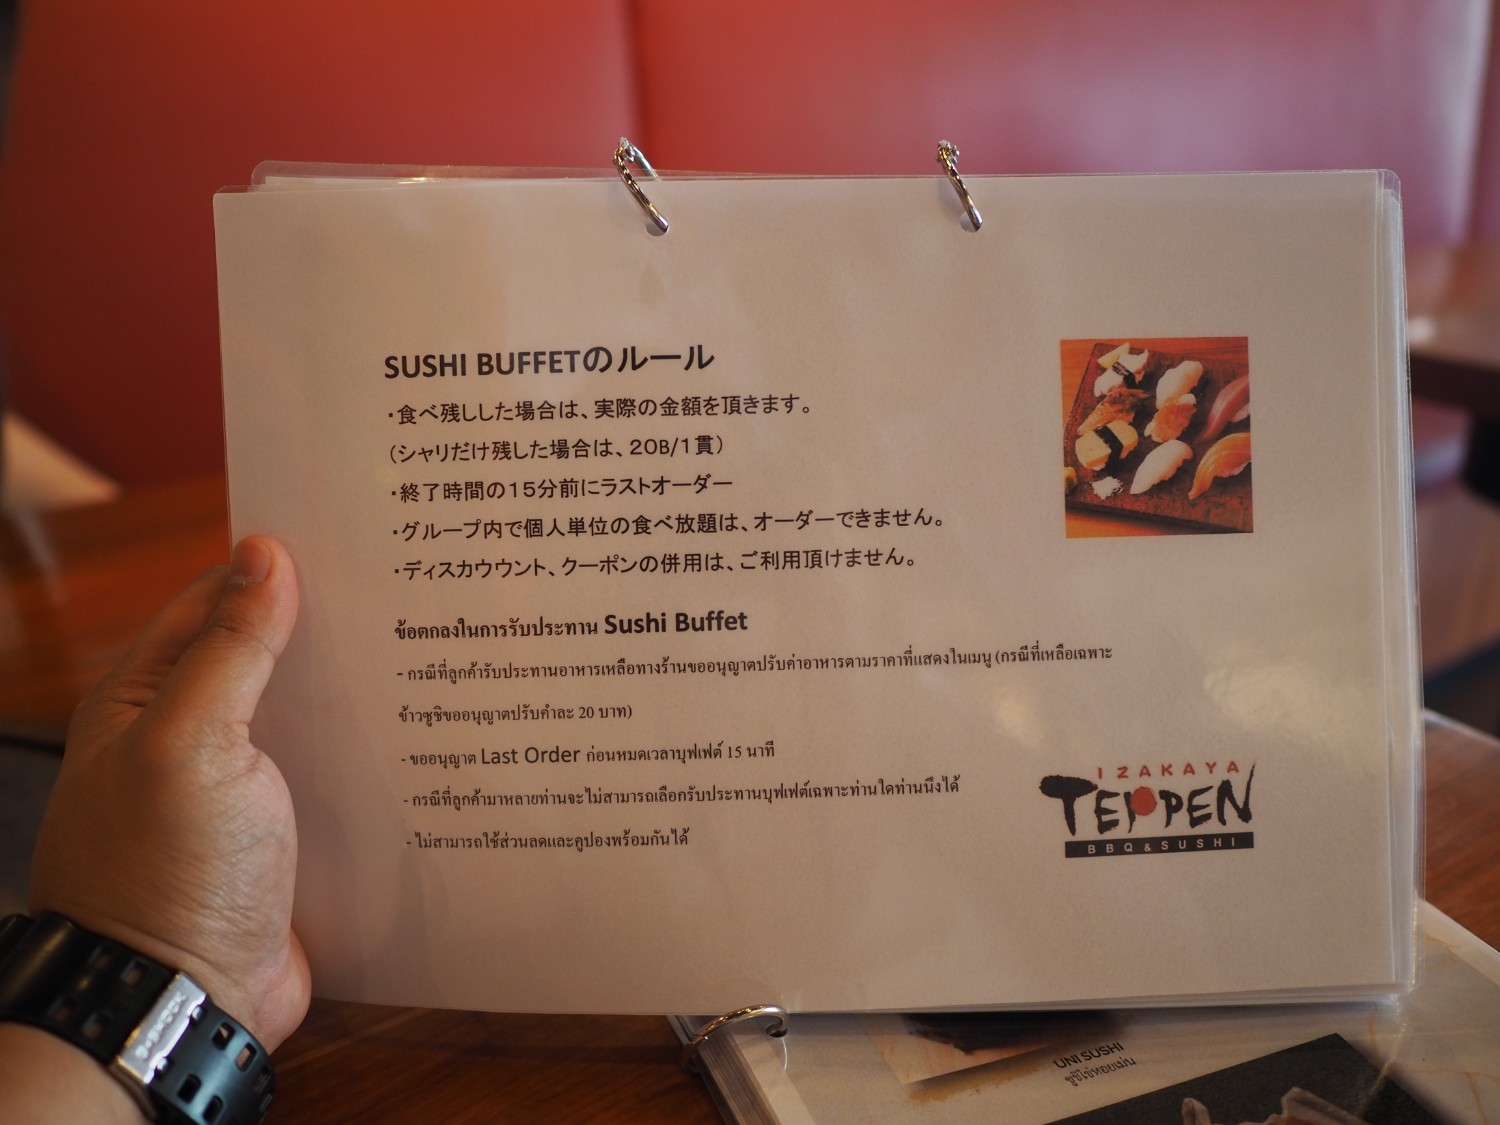 SUSHI BUFFETのルール
・食べ残しした場合は、実際の金額を頂きます。
（シャリだけ残した場合は、20B/1貫）
・終了時間の15分前にラストオーダー
・グループ内で個人単位の食べ放題は、オーダーできません。
・ディスカウウント、クーポンの併用は、ご利用頂けません。
ข้อตกลงในการรับประทาน Sushi Buffet
- กรณีที่ลูกค้ารับประทานอาหารเหลือทางร้านขออนุญาตปรับค่าอาหารตามราคาที่แสดงในเมนู (กรณีที่เหลือเฉพาะ
ข้าวซูชิขออนุญาตปรับคำละ 20 บาท)
- ขออนุญาต Last Order ก่อนหมดเวลาบุฟเฟต์ 15 นาที
- กรณีที่ลูกค้ามาหลายท่านจะไม่สามารถเลือกรับประทานบุฟเฟต์เฉพาะท่านใดท่านนึงได้
- ไม่สามารถใช้ส่วนลดและคูปองพร้อมกันได้
IZAKAYA
TEPPEN
BBQ & SUSHI
UNI SUSHI
ซูชิไข่หอยเม่น